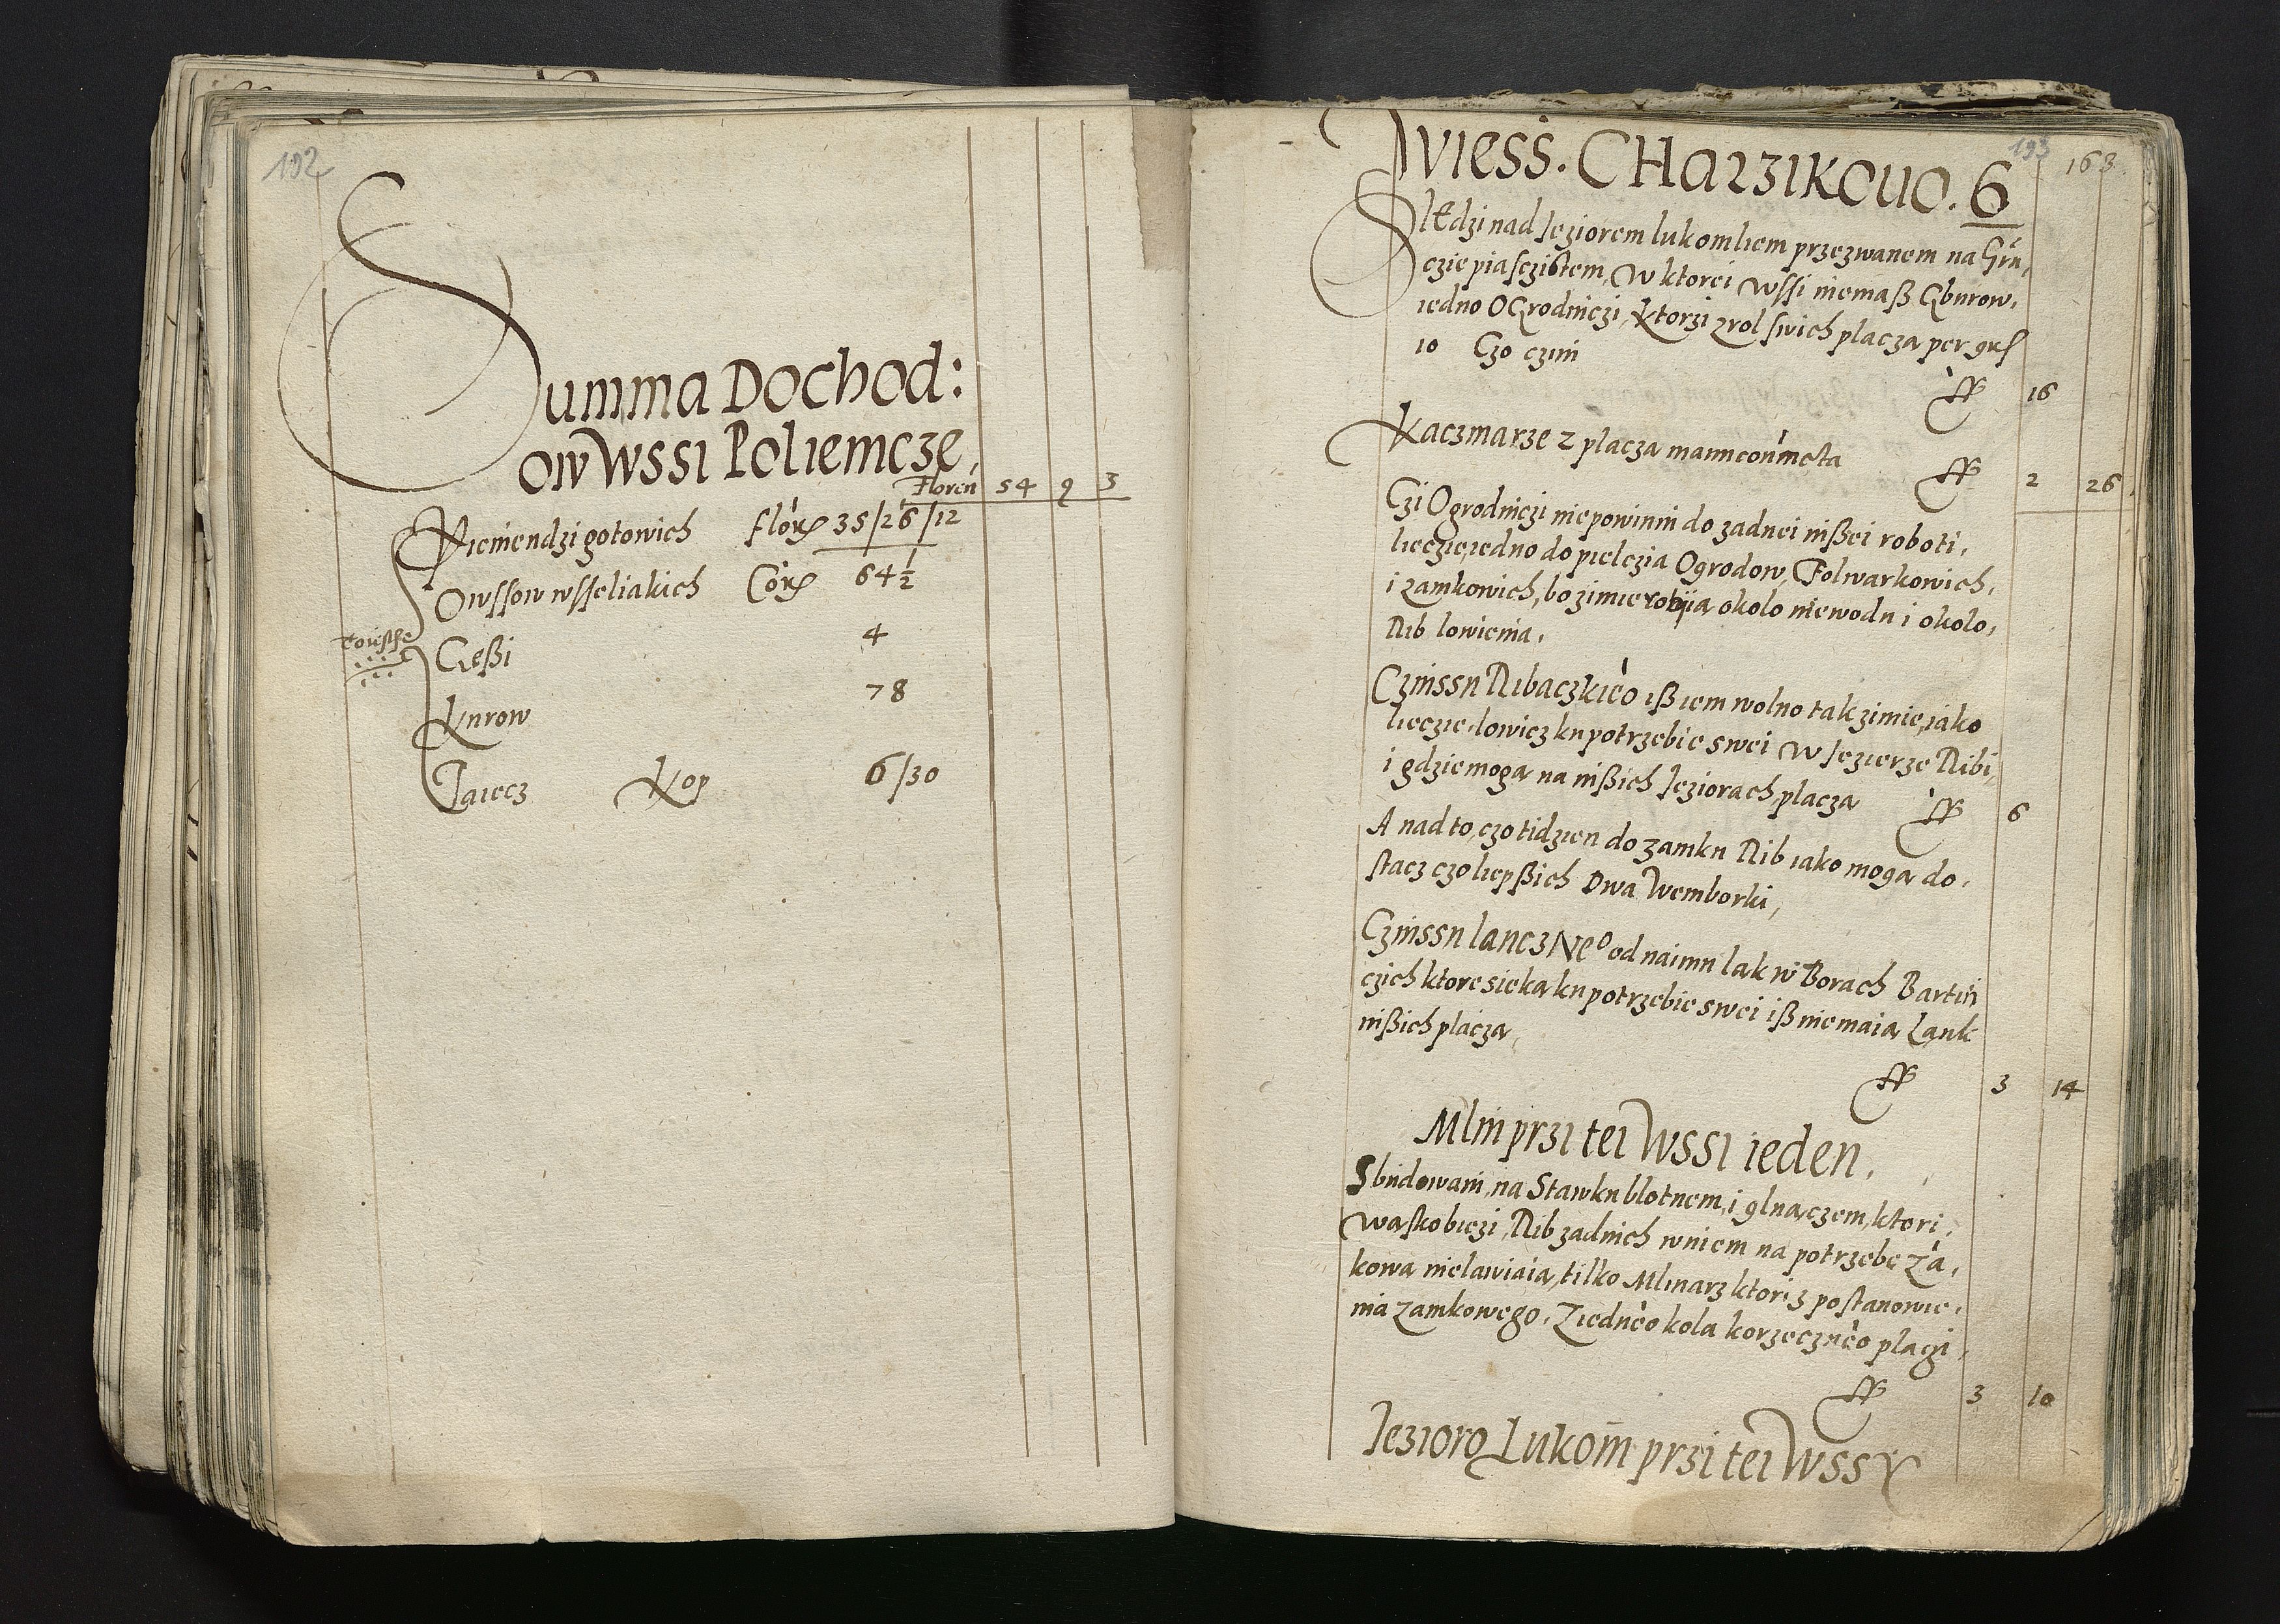 192
Summa Dochod:
ow Wssi Poliemcze,
Floren 54 9 3
Pieniendzi gotowich flor 35/26/12
Owssow wsseliakich Cor 64½
Gęßi 4
Kurow 78
Jaiecz Kop 6/30
193 163
Wiess. Charzikowo. 6
Sledzi nad Jeziorem lukomliem przezwanem na Grn,
czie piasczistem, W ktorei wssi niemaß Gburow,
iedno Ogrodniczi, ktorzi z rol swich placza per gr
10 Czo czini
16
Kaczmarze 2 placza
2 26
Czi Ogrodniczi nie powinni do zadnei inßei roboti,
lieczie, iedno do pielczia Ogrodow, Folwarkowich,
i zamkowich, bo zimie robiia okolo niewodu i okolo,
Rib lowienia,
Czinssu Ribaczkieo iß iem wolno tak zimie, iako
lieczie, lowicz ku potrzebie swei w Jezierze Ribi,
i gdzie moga na inßich Jeziorach, placza
6
A nad to, czo tidzien do zamku Rib iako moga do,
stacz czo liepßich Dwa Wemborki,
Czinssu lanczneo od naimu lak w Borach Bartni
czich ktore sieka ku potrzebie swei iß nie maia Lank
inßich placza,
3 14
Mlin przi tei Wssi ieden,
Sbudowani, na Stawku blotnem, i glnaczem, ktori,
waskobiezi, Rib zadnich w niem na potrzebe Za,
kowa nielawiaia, tilko Mlinarz ktori z postanowie,
nia zamkowego, Z iedneo kola korzeczneo placzi,
3 10
Jezioro Lukom przi tei Wssy